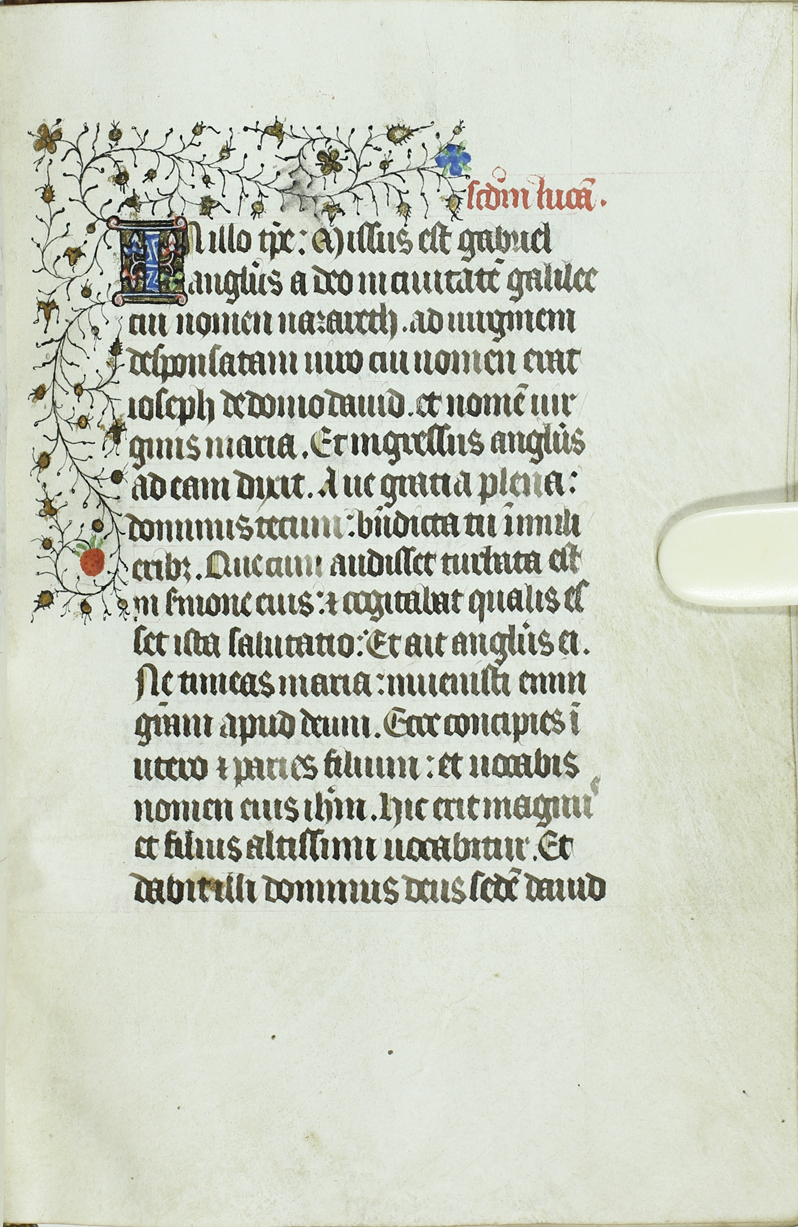 scd̄m lucā.
IN illo tp̄e: Missus est gabriel
angl̄us a deo in ciuitatē galilee
cui nomen nazareth. ad uirginem
desponsatam uiro cui nomen erat
ioseph de domo dauid. et nomē uir
ginis maria. Et ingressus angl̄us
ad eam dixit. Aue gratia plena:
dominus tecum: bn̄dicta tu ī muli
eribꝫ. Que cum audisset turbata est
in s̄mone eius: ⁊ cogitabat qualis es
set ista salutatio: Et ait angl̄us ei.
Ne timeas maria: inuenisti enim
gr̄am apud deum. Ecce concipies ī
utero ⁊ paries filium: et uocabis
nomen eius ih̄m. Hic erit magnuˢ
et filius altissimi uocabitur. Et
dabit illi dominus deus sedē dauid